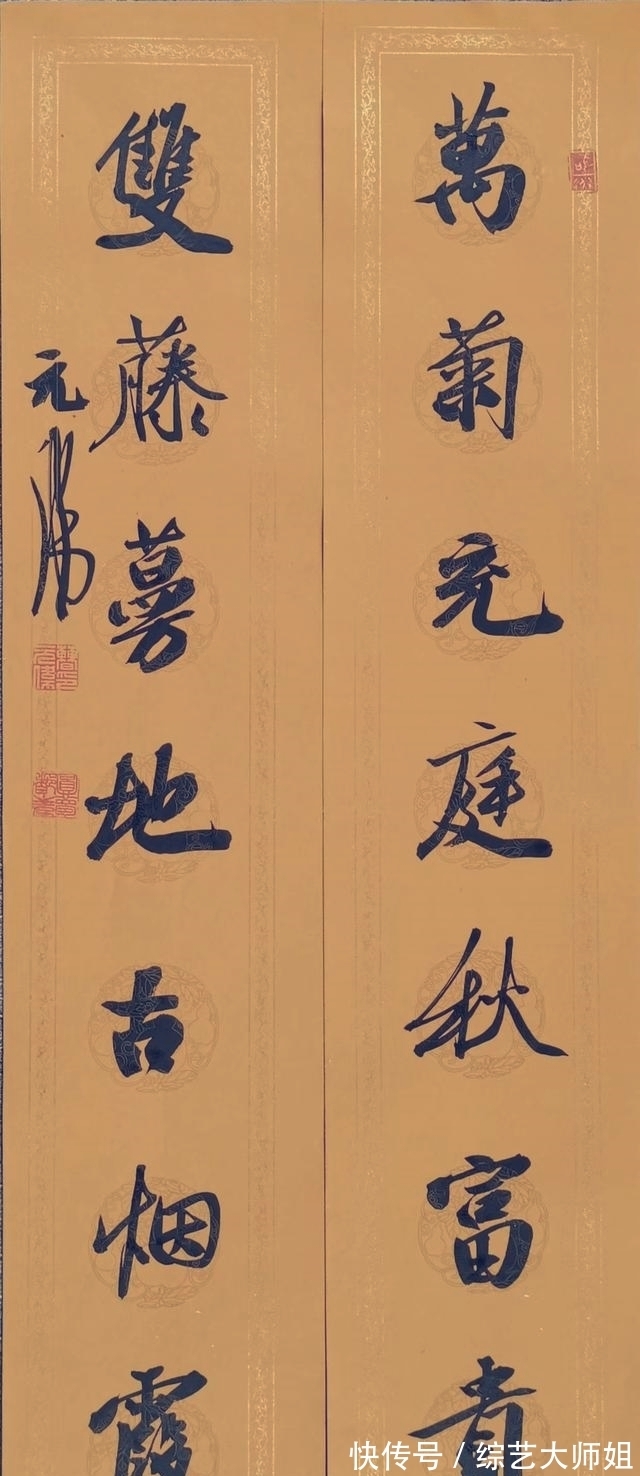 萬菊充庭秋富貴
雙藤蔓地古烟霞
元
快传号 / 综艺大师姐